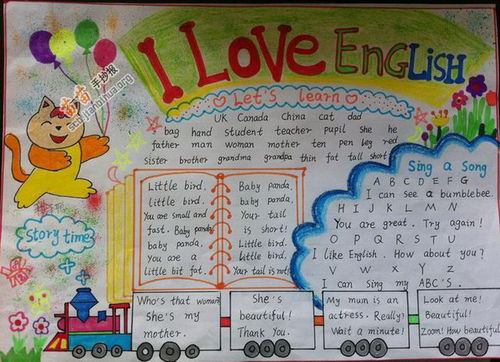 I LOVE ENGLISH
Let's learn
UK Canada China cat dad
bag hand student teacher pupil she he
father man woman mother ten pen leg red
sister brother grandma grandpa thin fat tall short
Little bird,
little bird,
You are small and
fast. Baby panda,
baby panda,
You are a
little bit fat.
Baby panda,
baby panda,
Your tail
is short!
Little bird,
little bird,
Your tail is not!
Sing a Song
A B C D E F G
I can see a bumblebee
H I J K L M N
You are great. Try again!
O P Q R S T U
I like English. How about you?
V W X Y Z
I can Sing my ABC's.
Story time
Who's that woman
She's my
mother.
She's
beautiful!
Thank You.
My mum is an
actress. Really?
Wait a minute!
Look at me!
Beautiful!
Zoom! How beautiful
手抄报